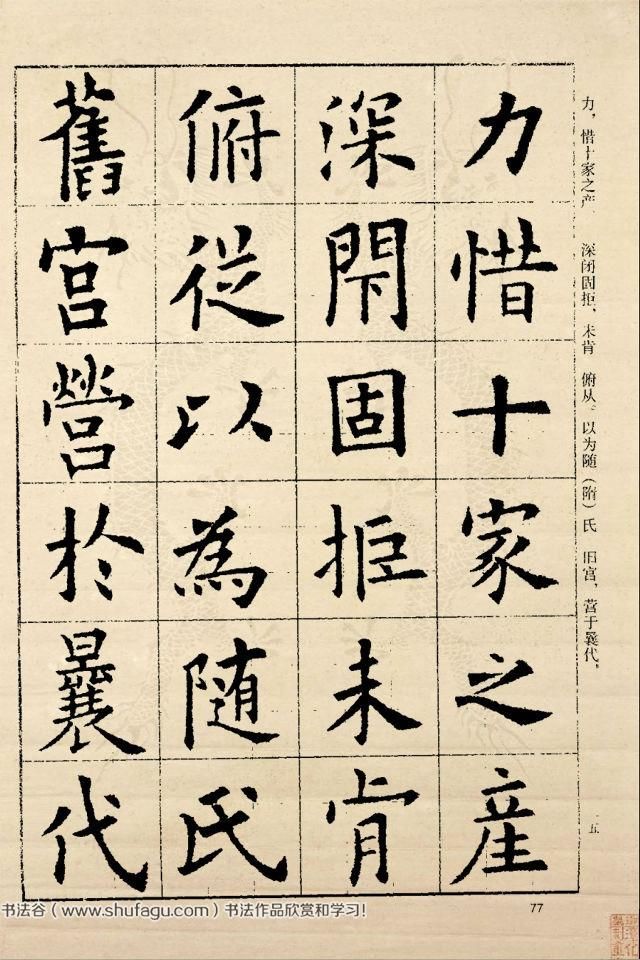 力惜十家之産
深閇固拒未肯
俯從以為随氏
舊宫營於曩代
力，惜十家之产 深闭固拒，未肯 俯从。以为随（隋）氏 旧宫，营于曩代，
一五
77
书法谷（www.shufagu.com）书法作品欣赏和学习！